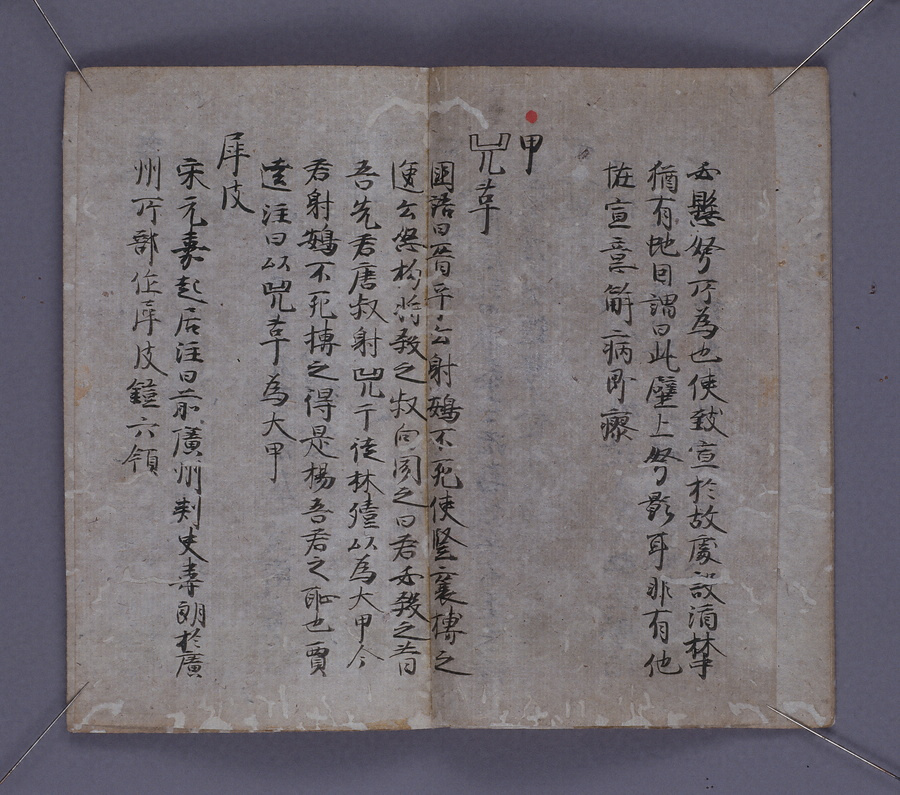 必懸弩所為也使致宣於故處設酒杯中
猶有虵因謂曰此壁上弩影耳非有他
恠宣意解病即瘳
甲
兕革
國語曰晋平公射鴳不死使竪襄搏之
公怒拘将殺之叔向聞之曰君必殺之昔
吾先君唐叔射兕于徒林殪以為大甲今
君射鴳不死搏之得是楊吾君之恥也賈
逵注曰以兕革為大甲
犀皮
宋元嘉起居注曰前廣州刾史韋朗於廣
州所部作犀皮鎧六領